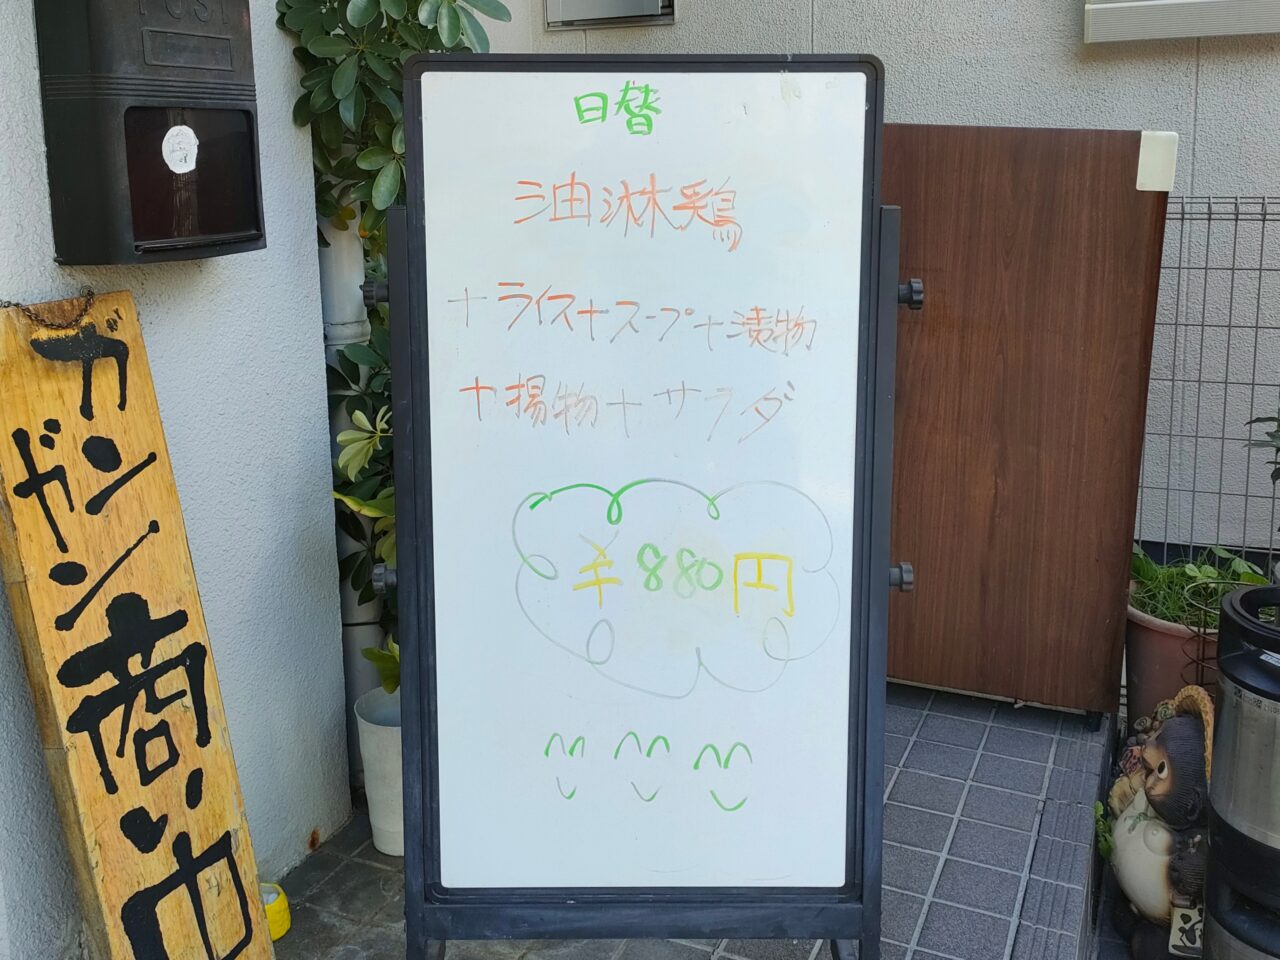 POST
日替
油淋鶏
+ライス+スープ+漬物
+揚物+サラダ
¥880円
ガンガン商い中